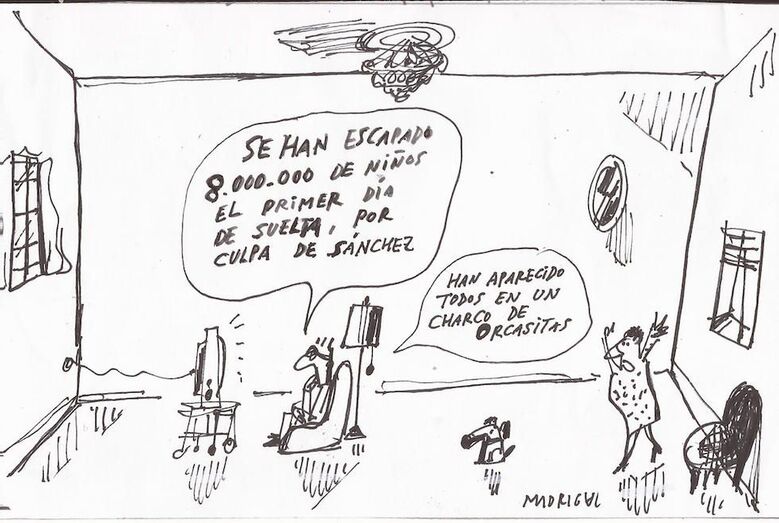 SE HAN ESCAPADO
8.000.000 DE NIÑOS
EL PRIMER DÍA
DE SUELTA, POR
CULPA DE SÁNCHEZ
HAN APARECIDO
TODOS EN UN
CHARCO DE
ORCASITAS
MADRIGAL